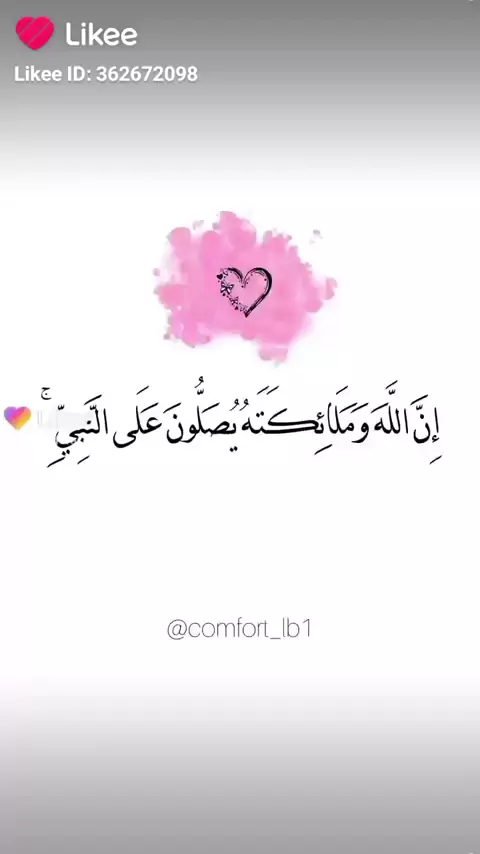 Likee
Likee ID: 362672098
إِنَّ اللَّهَ وَمَلَائِكَتَهُ يُصَلُّونَ عَلَى النَّبِيِّ ۚ
@comfort_lb1